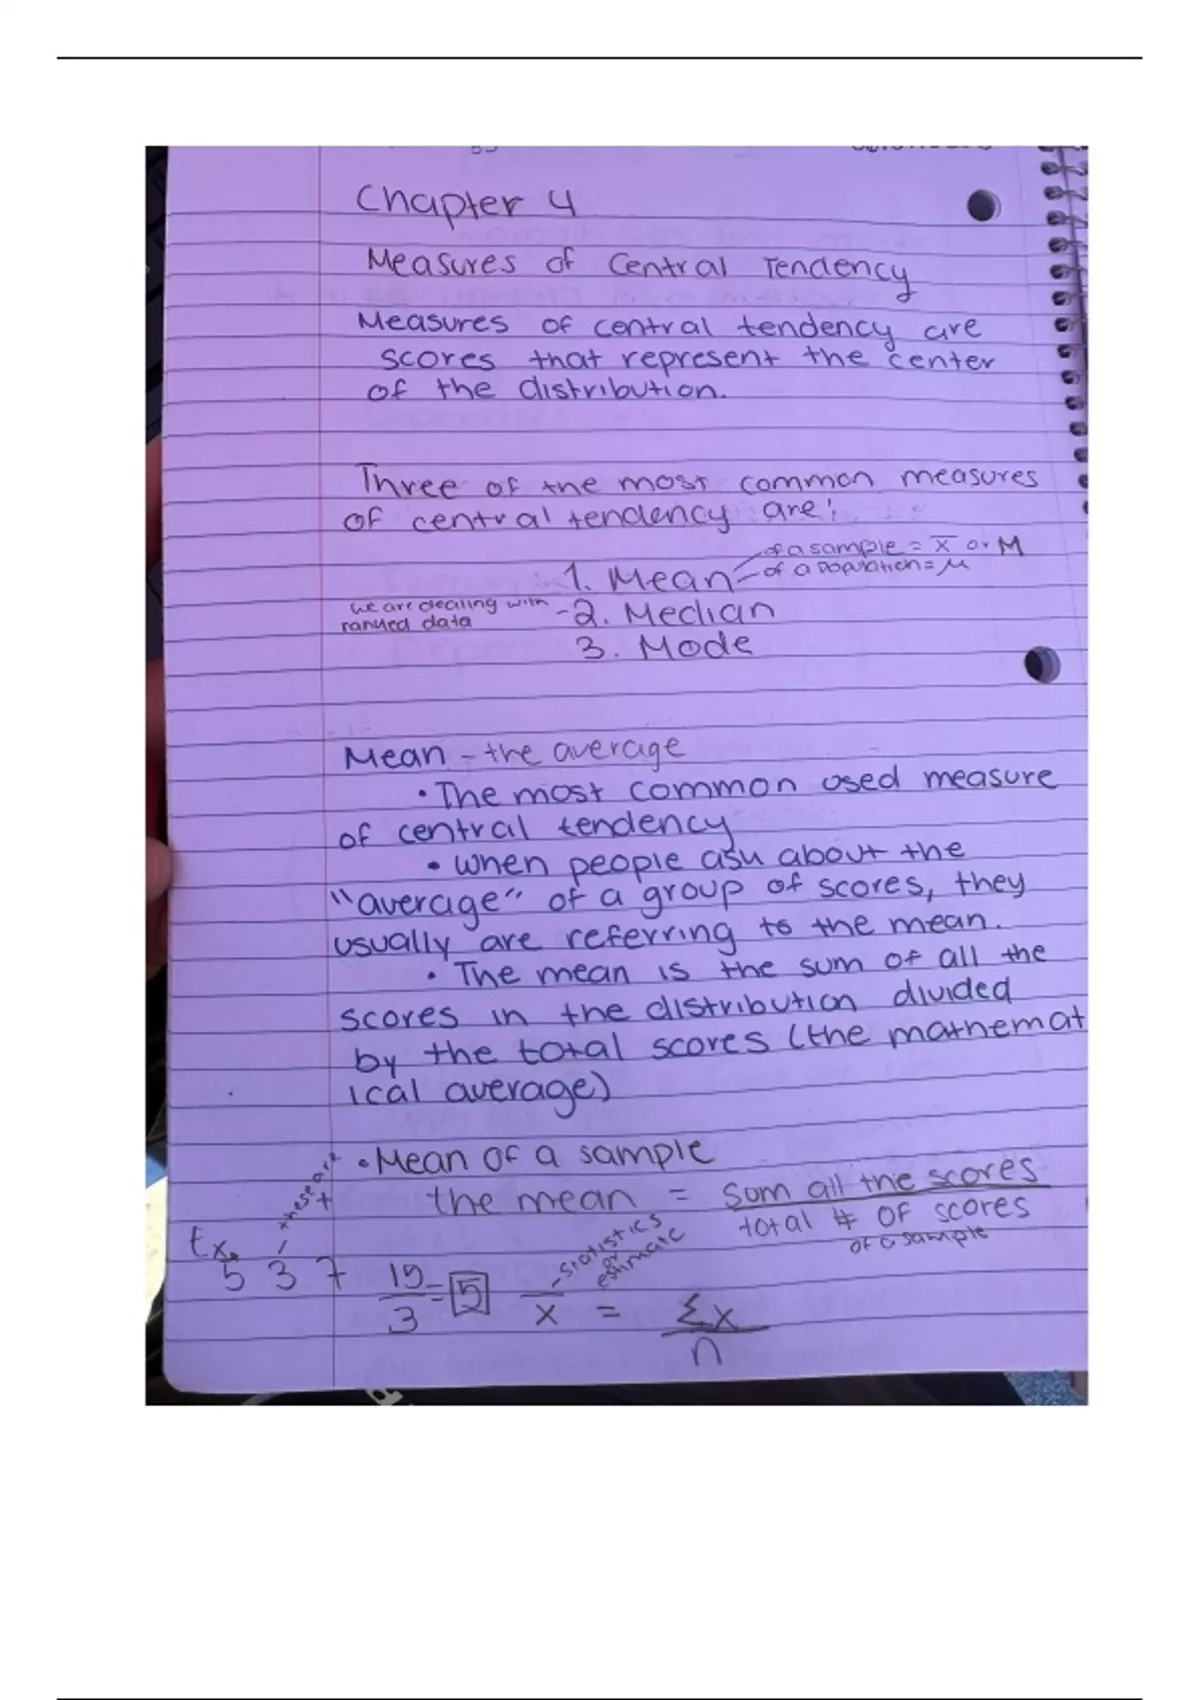 Chapter 4
Measures of Central Tendency
Measures of central tendency are
scores that represent the center
of the distribution.
Three of the most common measures
of central tendency are:
of a sample = x̄ or M
1. Mean - of a population = μ
we are dealing with - 2. Median
ranked data
3. Mode
Mean - the average
• The most common used measure
of central tendency
• When people ask about the
"average" of a group of scores, they
usually are referring to the mean.
• The mean is the sum of all the
scores in the distribution divided
by the total scores (the mathemat
ical average)
• Mean of a sample
the mean = sum all the scores
total # of scores
of a sample
these are x
Ex.
5 3 7 15/3 = 5
- statistics or estimate
x̄ = Σx
n